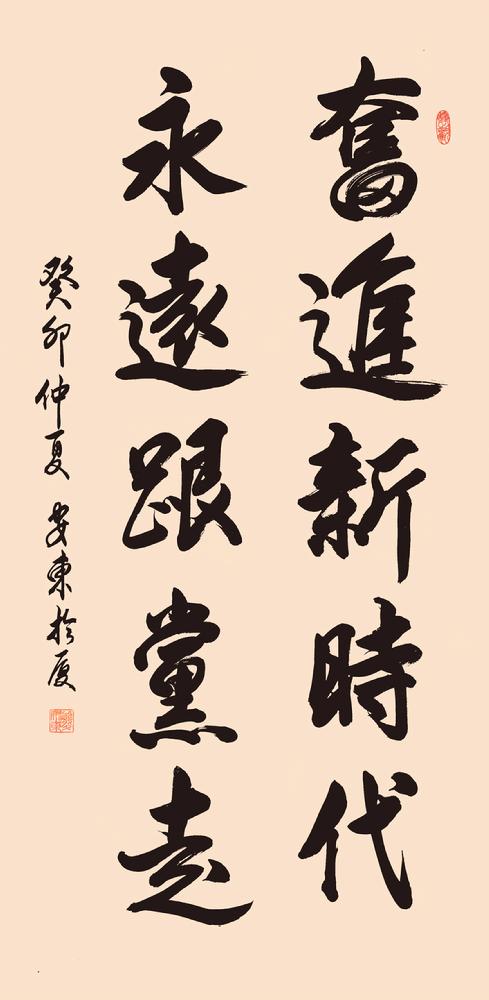 奮進新時代
永遠跟黨走
癸卯仲夏 安東於厦